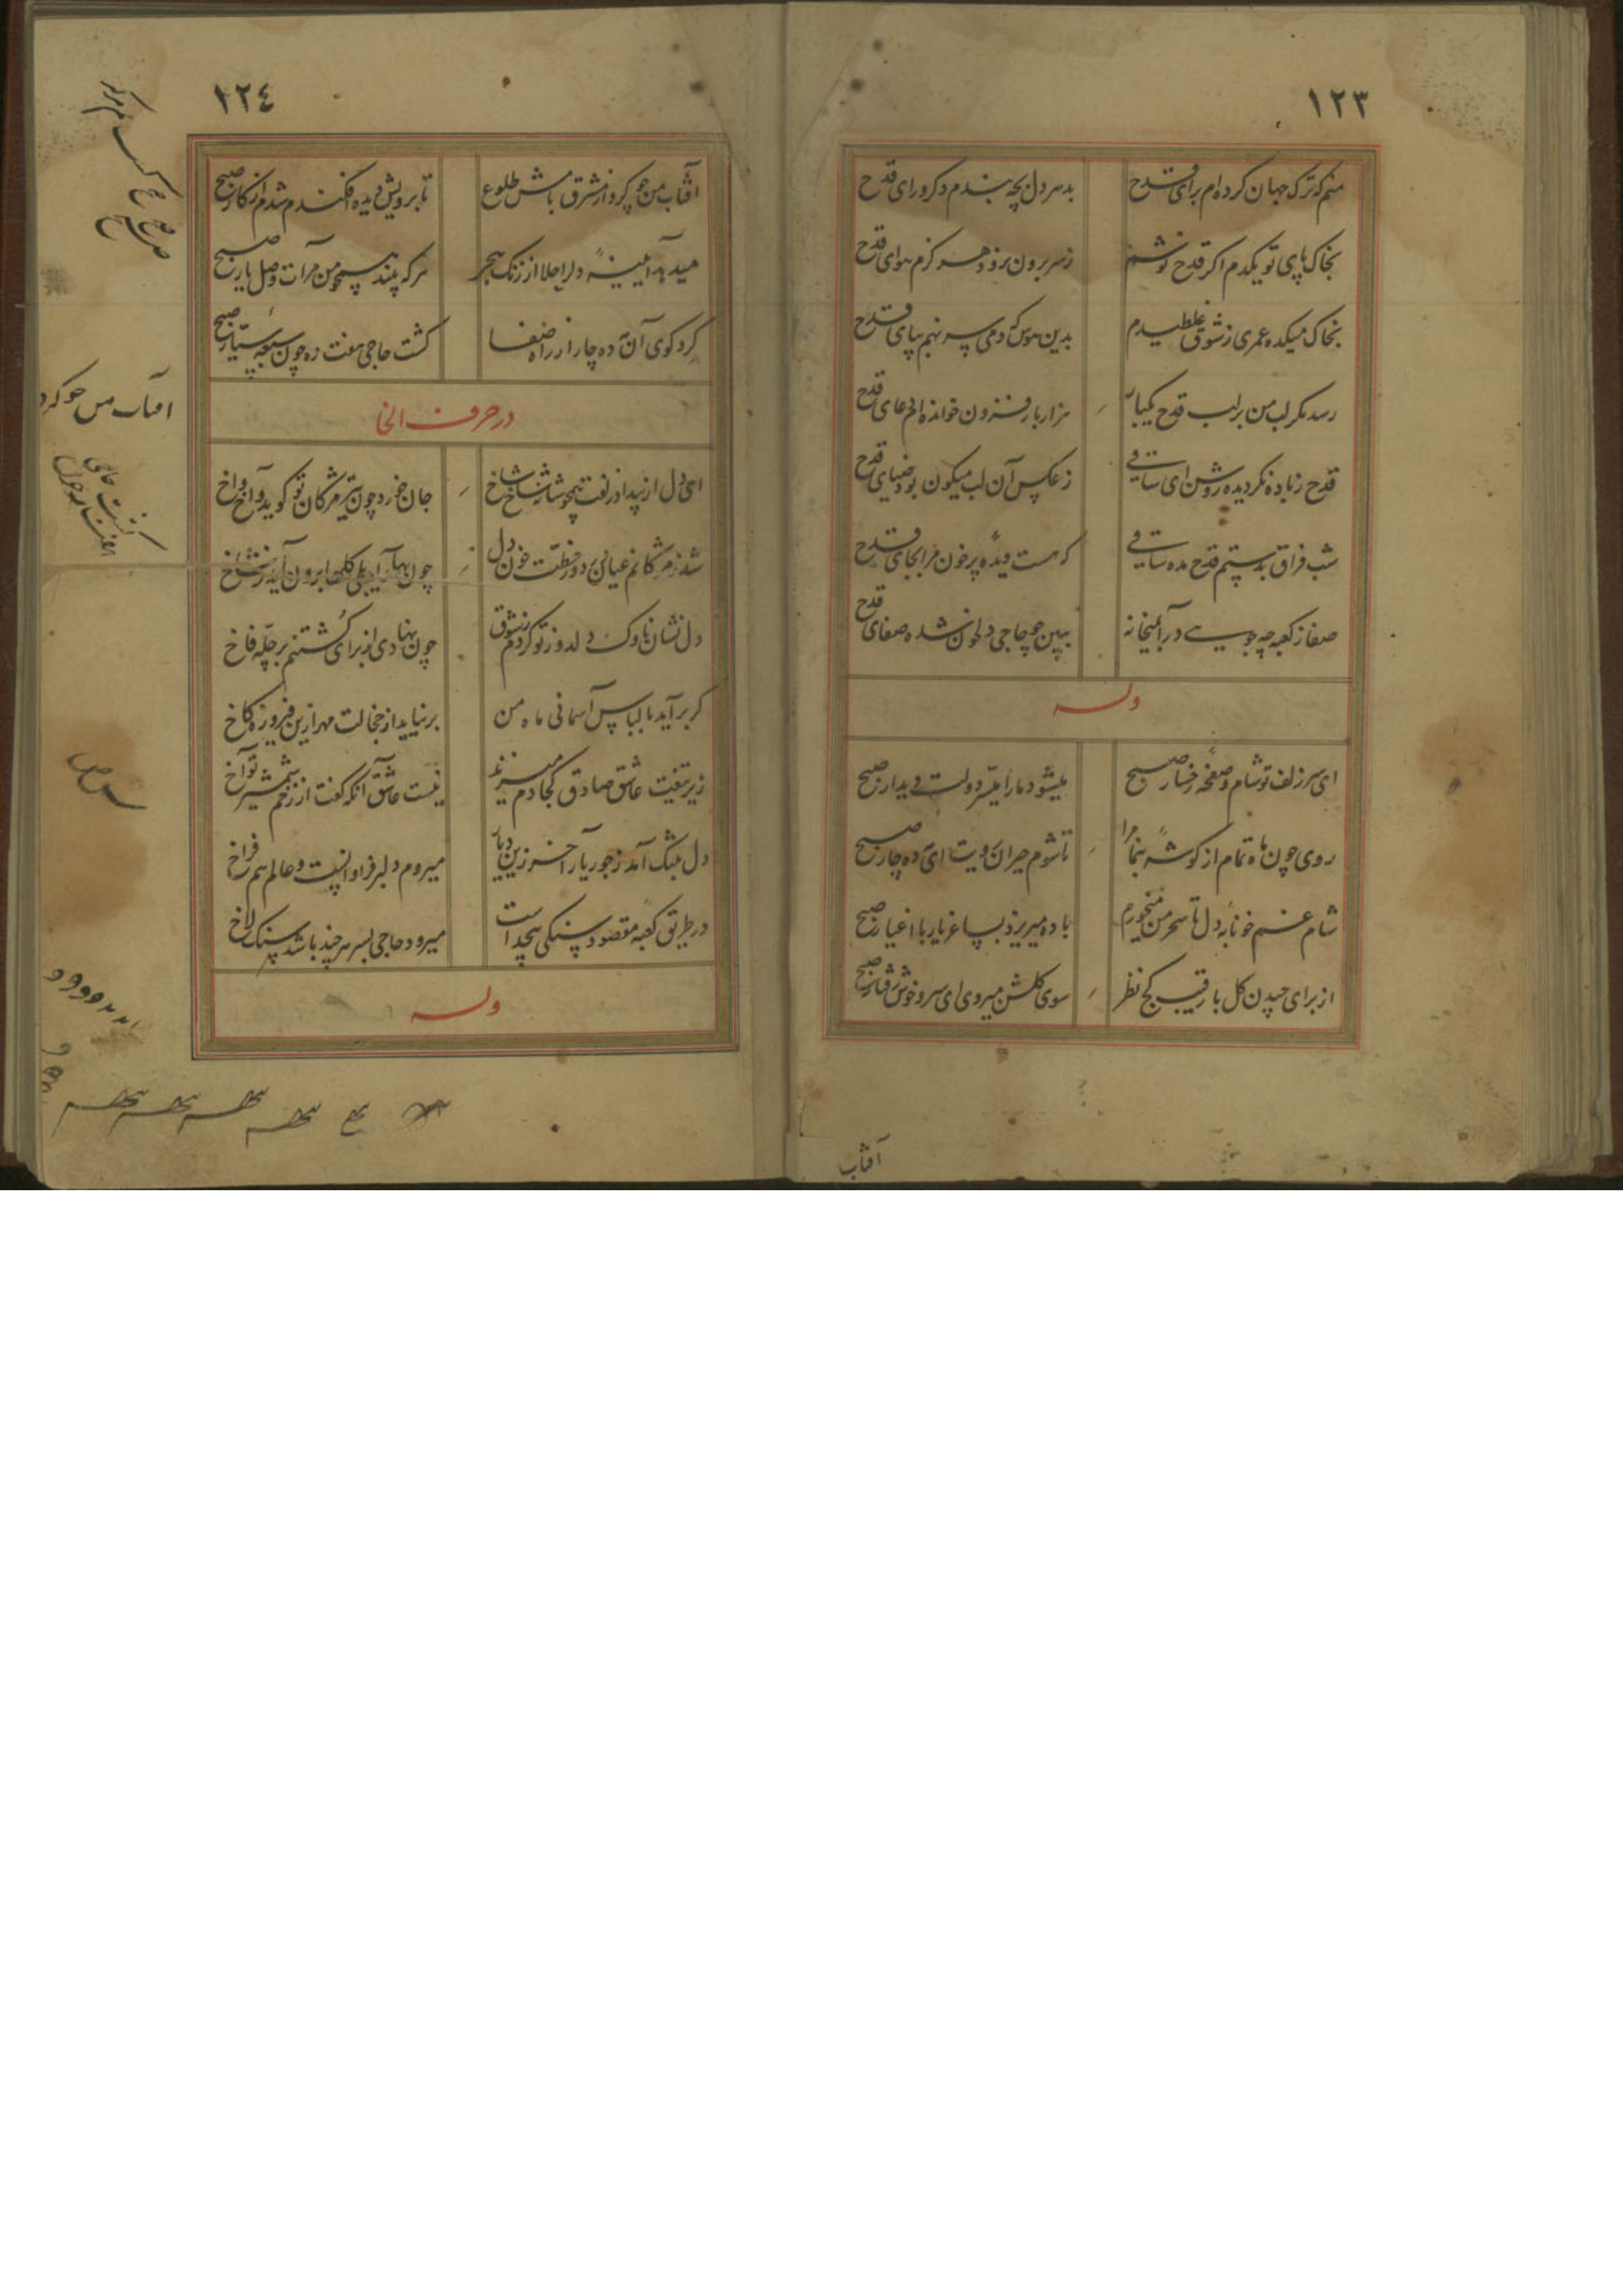 ١٢٣
منم که ترک جهان کرده‌ام برای قدح
بدهر دل بچه بندم دکر ورای قدح
بخاک پای تو یکدم اکر قدح نوشم
ز سر برون نرود هرکزم هوای قدح
بخاک میکده عمری ز شوق غلطیدم
بدین هوس که دمی سر نهم بپای قدح
رسد مکر لب من بر لب قدح یکبار
هزار بار فزون خوانده‌ام دعای قدح
قدح ز باده نکردیده روشن ای ساقی
ز عکس آن لب میکون بود ضیای قدح
شب فراق بدستم قدح مده ساقی
که هست دیده پرخون مرا بجای قدح
صفا ز کعبه چه جویی درآ بمیخانه
ببین چو حاجی دلخون شده صفای قدح
وله
ای سر زلف تو شام و صفحه رخسار صبح
میشود ما را میسر دولت دیدار صبح
روی چون ماه تمام از کوشه بنما مرا
تا شوم حیران رویت ای مه ده چار صبح
شام غم خونابه دل تا سحر من میخورم
باده میریزد بساغر یار با اغیار صبح
از برای چیدن کل با رقیب کج نظر
سوی کلشن میروی ای سرو خوش رفتار صبح
آفتاب
١٢٤
آفتاب من چو کرد از مشرق بامش طلوع
تا برویش دیده افکندم شدم از کار صبح
میدهد آیینه دل را جلا از زنک هجر
هر که بیند همچو من مرآت وصل یار صبح
کرد کوی آن مه ده چار از راه صفا
کشت حاجی هفت ره چون سبعه سیار صبح
در حرف الخا
ای دل از بیداد زلفت همچو شانه شاخ شاخ
جان خورد چون تیر مژکان تو کوید آخ و آخ
شد ز مژکانم عیان در دور خطت خون دل
چون بهار آید بلی کلها برون آید ز شاخ
دل نشان ناوک دلدوز تو کردم ز شوق
چون نهادی از برای کشتنم بر چله فاخ
کر برآید با لباس آسمانی ماه من
برنیاید از خجالت مهر ازین فیروزه کاخ
زیر تیغت عاشق صادق کجا دم میزند
نیست عاشق آنکه کفت از زخم شمشیر تو آخ
دل بتنک آمد ز جور یار آخر زین دیار
میروم دلبر فراوانست و عالم هم فراخ
در طریق کعبه مقصود سنکی بیحد است
میرود حاجی بسر هر چند باشد سنک لاخ
وله
افتاب من چو کرد